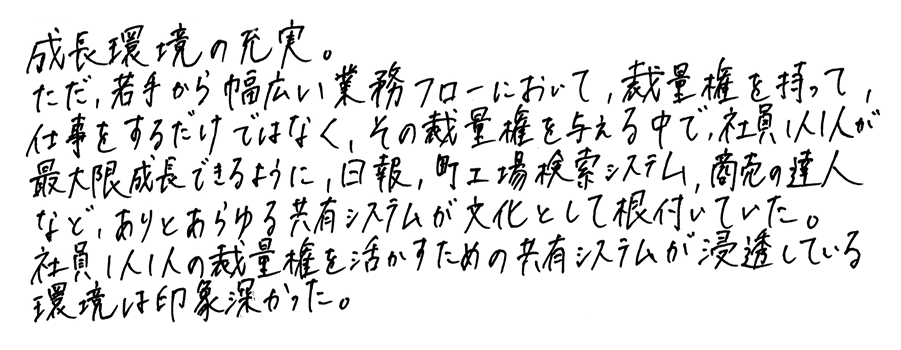 成長環境の充実。
ただ,若手から幅広い業務フローにおいて,裁量権を持って,
仕事をするだけではなく,その裁量権を与える中で,社員1人1人が
最大限成長できるように,日報,町工場検索システム,商売の達人
など,ありとあらゆる共有システムが文化として根付いていた。
社員1人1人の裁量権を活かすための共有システムが浸透している
環境は印象深かった。